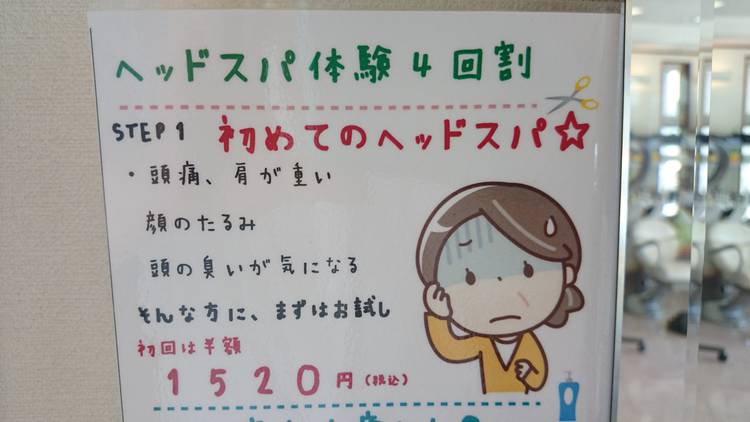 ヘッドスパ体験4回割
STEP1 初めてのヘッドスパ☆
・頭痛、肩が重い
顔のたるみ
頭の臭いが気になる
そんな方に、まずはお試し
初回は半額
1520円(税込)